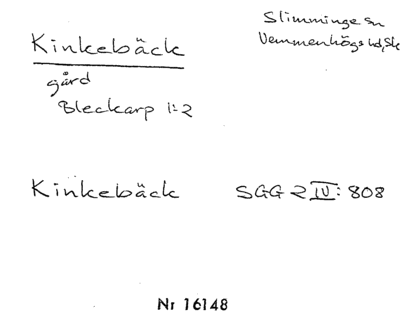 Kinkebäck
Slimminge sn
Vemmenhögs hd, Sk
gård
Bleckarp 1:2
Kinkebäck SGG 2 IV: 808
Nr 16148